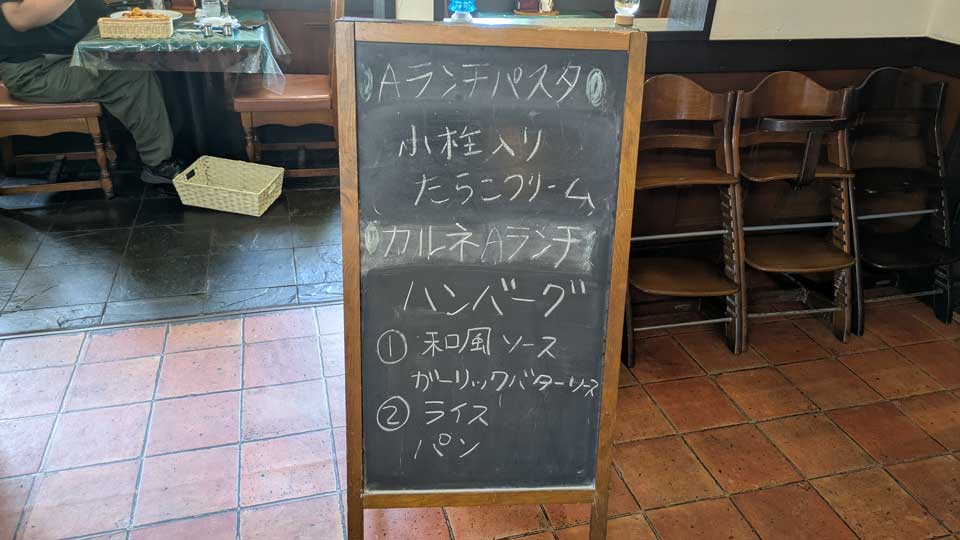 Aランチパスタ
小柱入り
たらこクリーム
カルネAランチ
ハンバーグ
① 和風ソース
ガーリックバターソース
② ライス
パン